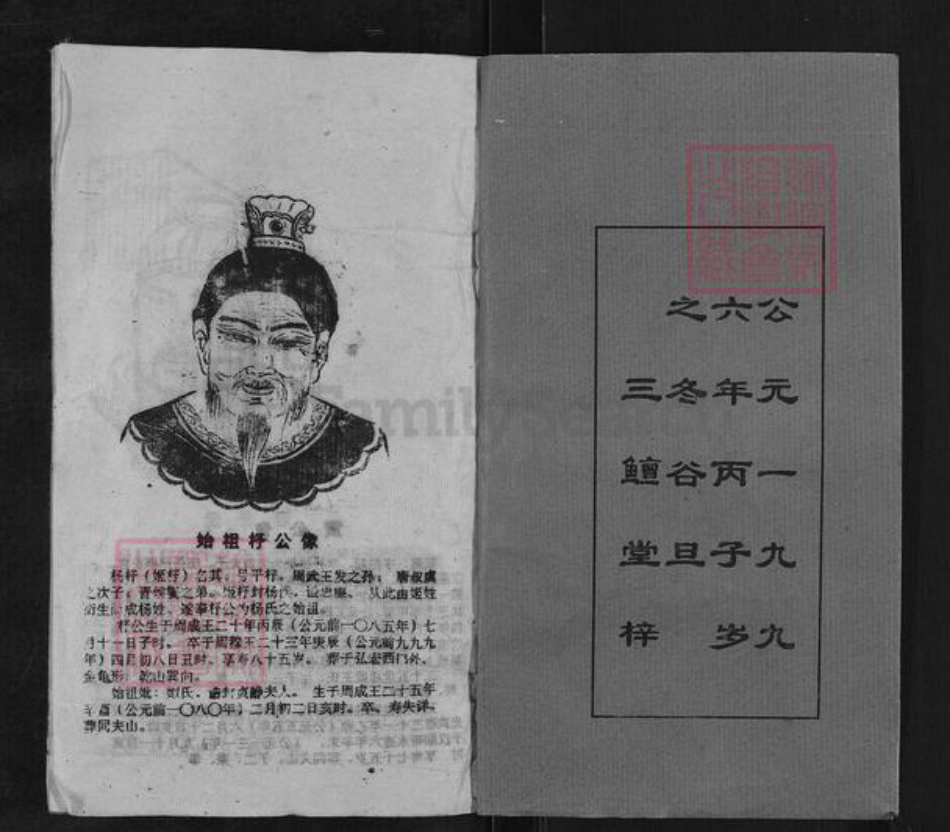 公元一九九
六年丙子岁
之冬谷旦
三鱣堂梓
始祖杼公像
杨杼（姬杼）名其，号平杼。周武王发之孙，唐叔虞
之次子，晋侯燮之弟。姬杼封杨侯，谥忠 从此由姬姓
衍生 成杨姓，遂奉杼公为杨氏之始祖。
杼公生于周成王二十年丙辰（公元前一〇八五年）七
月十一日子时。卒于周穆王二十三年庚辰（公元前九九九
年）四月初八日丑时，享寿八十五岁。葬于弘宏西门外，
金龟形，乾山巽向。
始祖妣：姒氏，诰封贞静夫人。生于周成王二十五年
辛酉（公元前一〇八〇年）二月初二日亥时。卒、寿失详，
葬同夫山。
FamilySearch